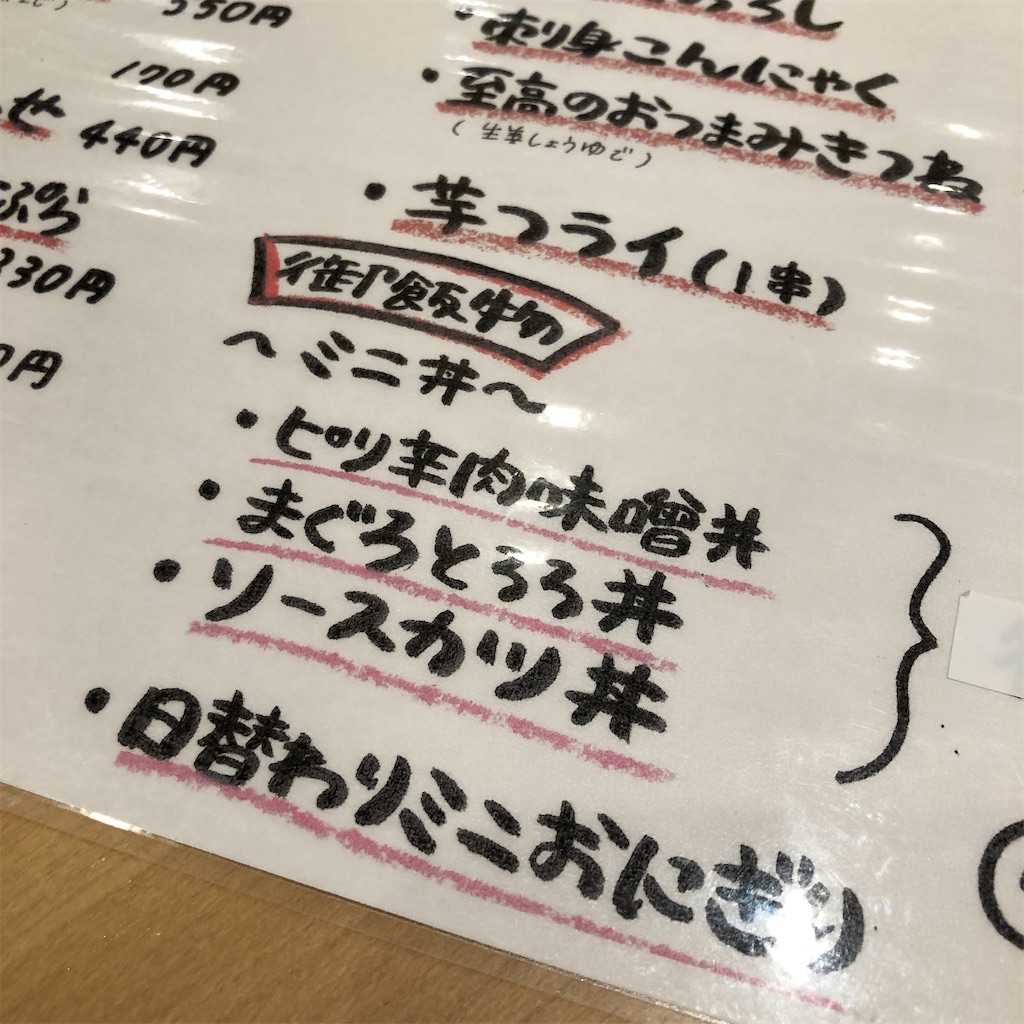 550円
170円
せ 440円
ぷら
330円
0円
ろし
・刺身こんにゃく
・至高のおつまみきつね
(生姜しょうゆで)
・芋フライ(1串)
御飯物
〜ミニ丼〜
・ピリ辛肉味噌丼
・まぐろとろろ丼
・ソースカツ丼
・日替わりミニおにぎり